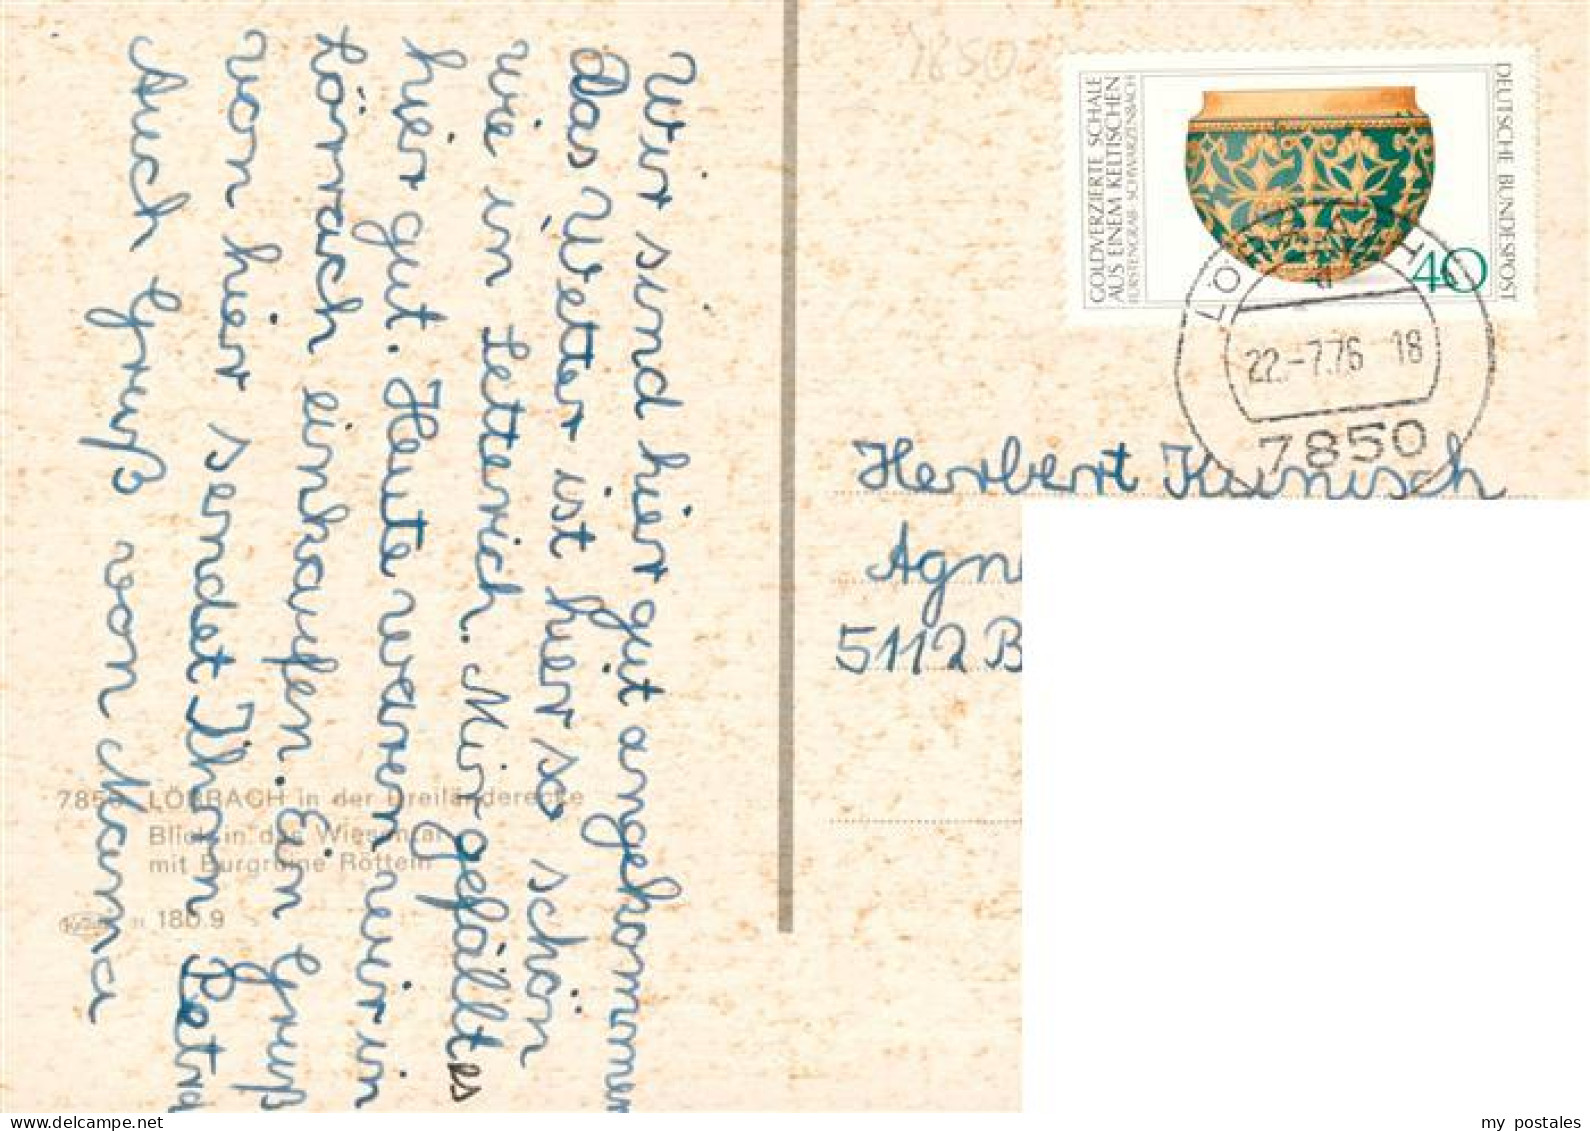 Wir sind hier gut angekommen
das Wetter ist hier so schön
wie in Setterich. Mir gefällt es
hier gut. Heute waren wir in
Lörrach einkaufen. Ein Gruß
von hier sendet Ihnen Petra
Auch Gruß von Mama
7850 LÖRRACH in der Dreiländerecke
Blick in das Wiesental
mit Burgruine Rötteln
180.9
7850
GOLDVERZIERTE SCHALE
AUS EINEM KELTISCHEN
FÜRSTENGRAB · SCHWARZENBACH
DEUTSCHE BUNDESPOST
40
LÖRRACH 1
d
22.-7.76 18
7850
Herbert Kunisch
Agn
5112 B
my_postales
delcampe.net